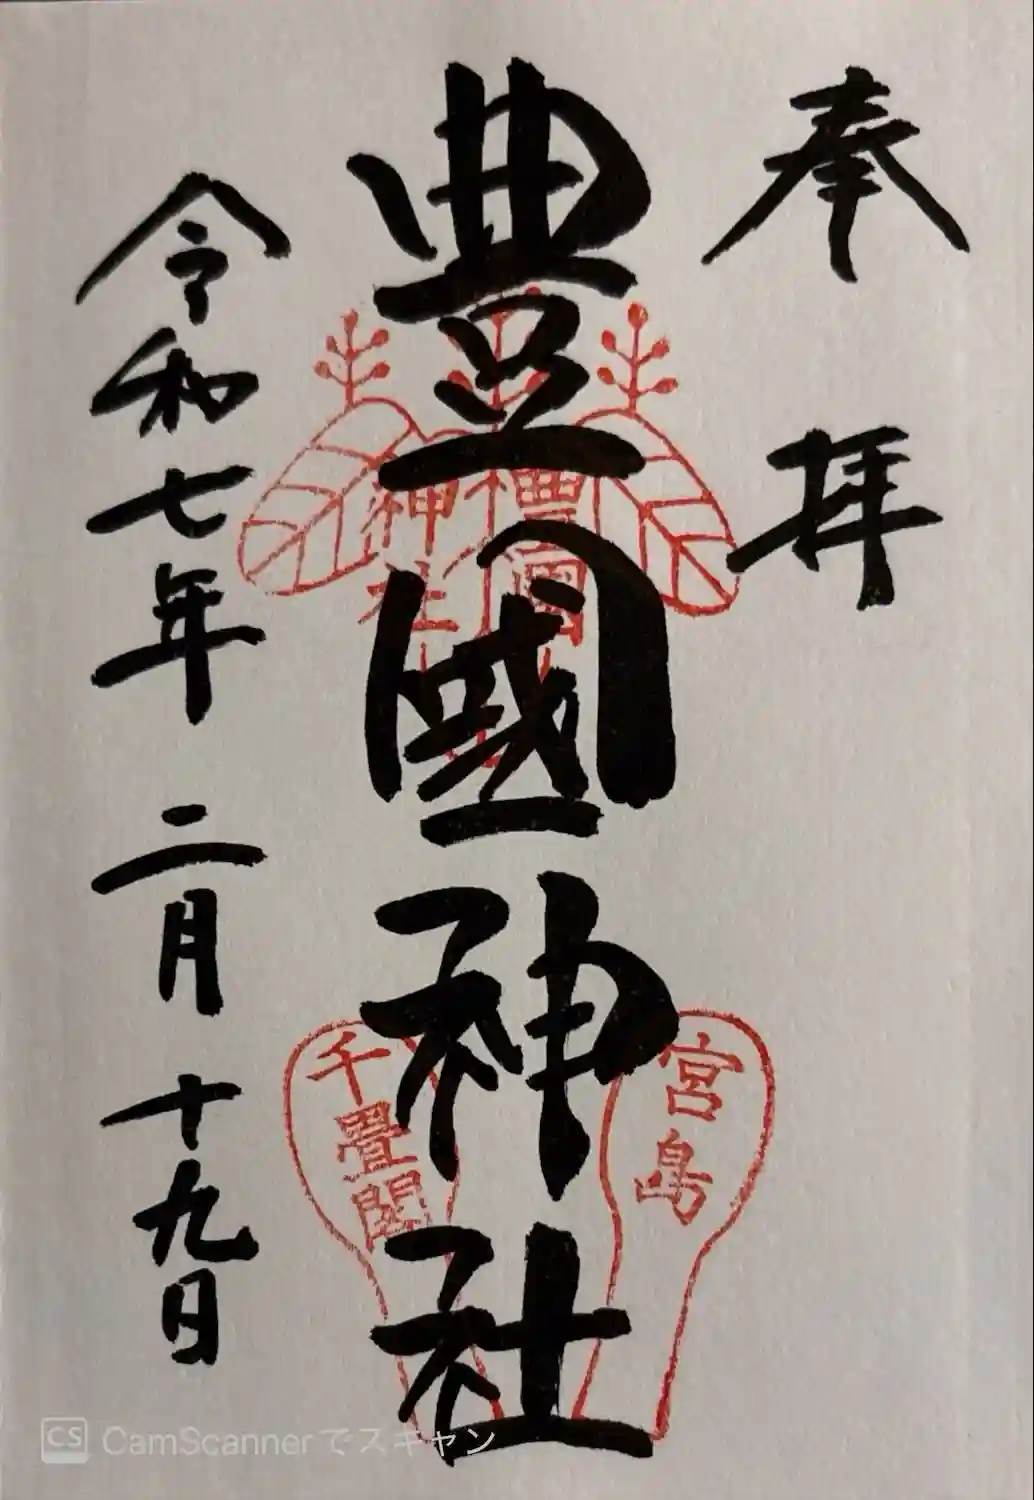 奉拝
豊國神社
令和七年二月十九日
豊國
神社
宮島
千畳閣
CS CamScannerでスキャン